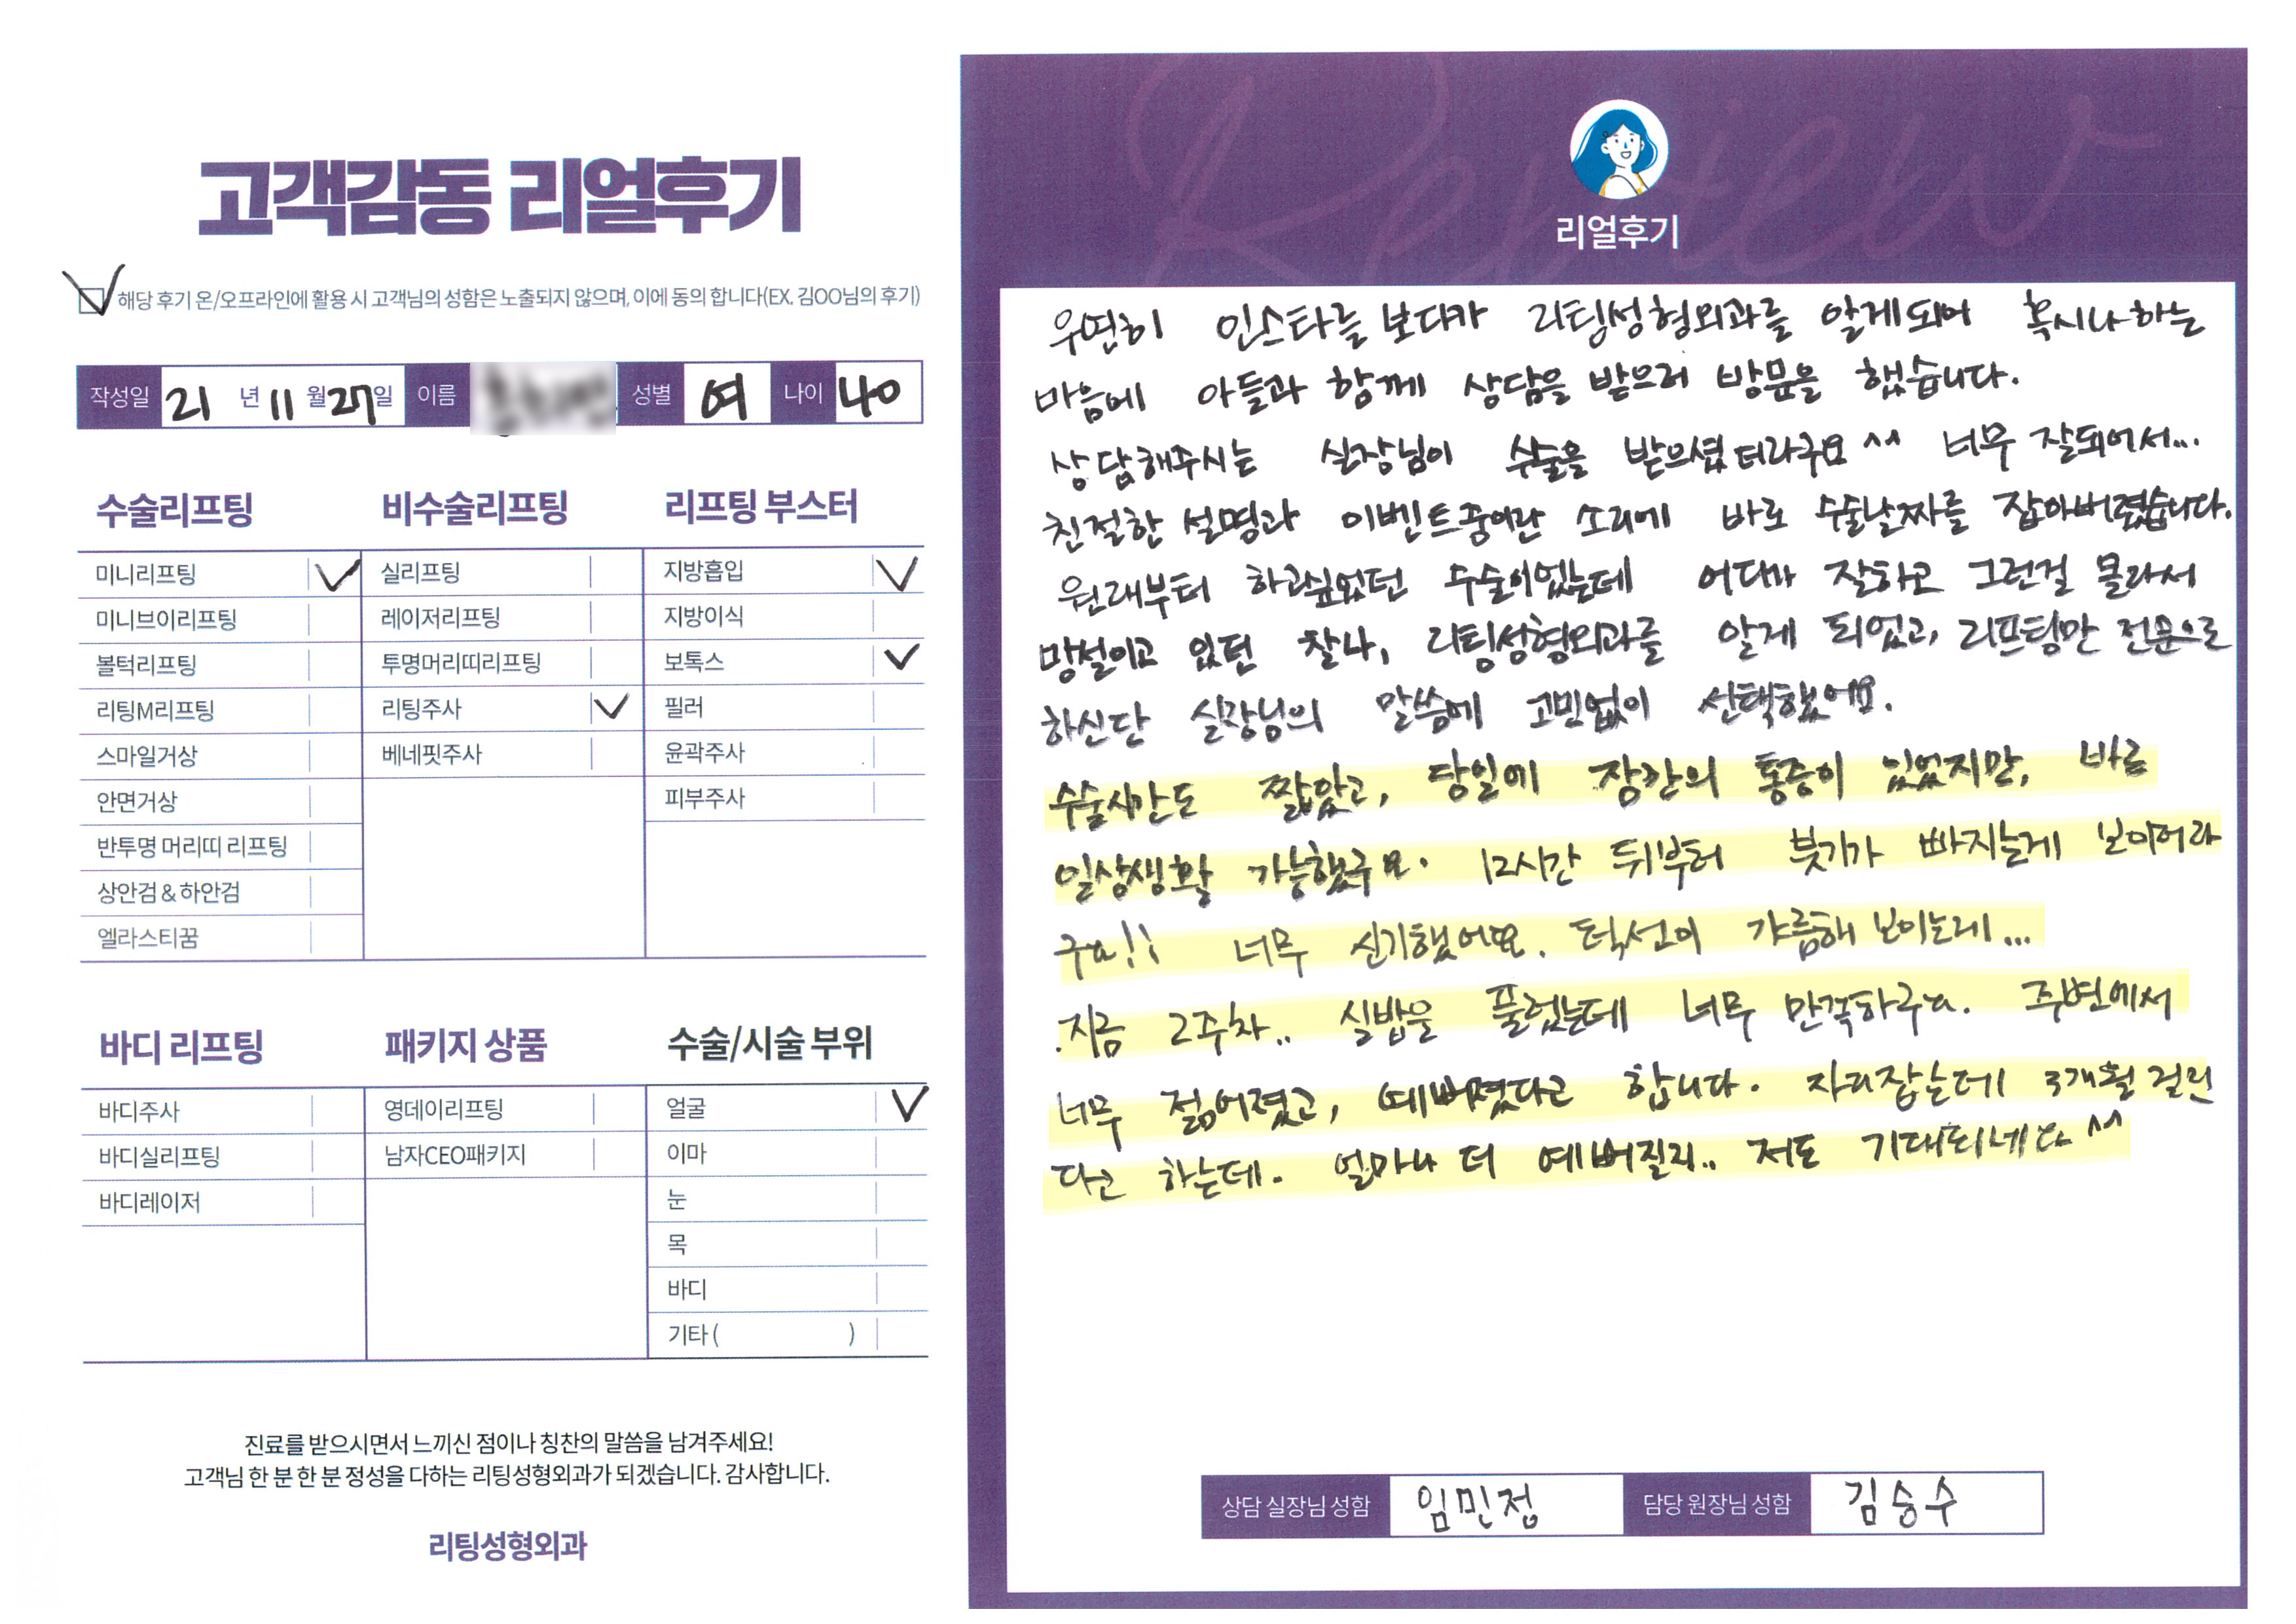 고객감동 리얼후기
해당 후기 온/오프라인에 활용 시 고객님의 성함은 노출되지 않으며, 이에 동의 합니다(EX. 김OO님의 후기)
작성일 21 년 11 월 27 일 이름 성별 여 나이 40
수술리프팅
미니리프팅
미니브이리프팅
볼턱리프팅
리팅M리프팅
스마일거상
안면거상
반투명 머리띠 리프팅
상안검 & 하안검
엘라스티꿈
비수술리프팅
실리프팅
레이저리프팅
투명머리띠리프팅
리팅주사
베네핏주사
리프팅 부스터
지방흡입
지방이식
보톡스
필러
윤곽주사
피부주사
바디 리프팅
바디주사
바디실리프팅
바디레이저
패키지 상품
영데이리프팅
남자CEO패키지
수술/시술 부위
얼굴
이마
눈
목
바디
기타 ( )
진료를 받으시면서 느끼신 점이나 칭찬의 말씀을 남겨주세요!
고객님 한 분 한 분 정성을 다하는 리팅성형외과가 되겠습니다. 감사합니다.
리팅성형외과
Review
리얼후기
우연히 인스타를 보다가 리팅성형외과를 알게되어 혹시나하는
마음에 아들과 함께 상담을 받으러 방문을 했습니다.
상담해주시는 실장님이 수술을 받으셨더라구요^^ 너무 잘되어서...
친절한 설명과 이벤트중이란 소리에 바로 수술날짜를 잡아버렸습니다.
원래부터 하고싶었던 수술이었는데 어디가 잘하고 그런걸 몰라서
망설이고 있던 찰나, 리팅성형외과를 알게 되었고, 리프팅만 전문으로
하신단 실장님의 말씀에 고민없이 선택했어요.
수술시간도 짧았고, 당일에 장간의 통증이 있었지만, 바로
일상생활 가능했구요. 12시간 뒤부터 붓기가 빠지는게 보이더라
구요!! 너무 신기했어요. 턱선이 갸름해 보이는데...
지금 2주차.. 실밥을 풀었는데 너무 만족하구요. 주변에서
너무 젊어졌고, 예뻐졌다고 합니다. 자리잡는데 3개월 걸린
다고 하는데. 얼마나 더 예뻐질지.. 저도 기대되네요^^
상담 실장님 성함 임민정 담당 원장님 성함 김승수